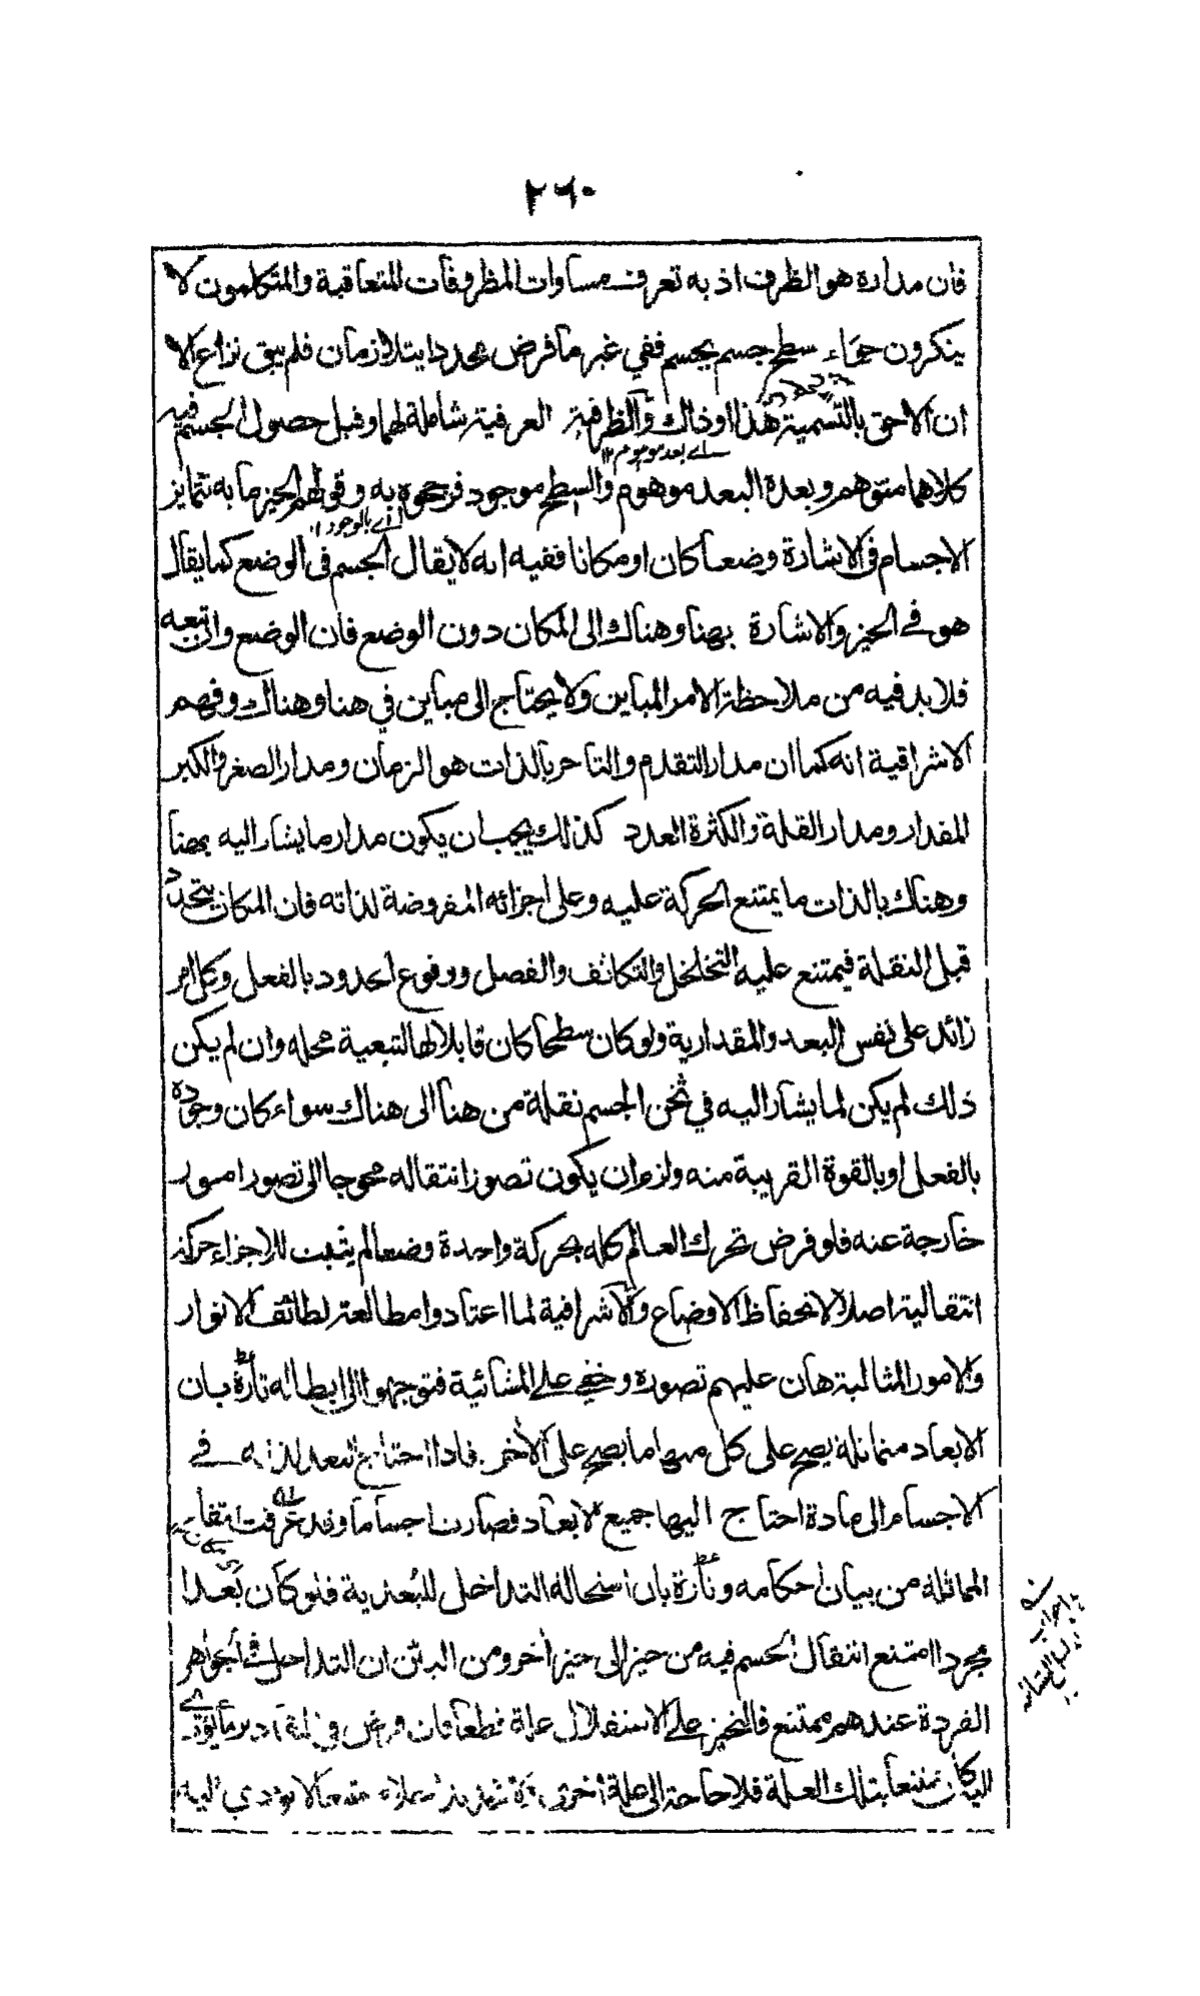 ٢٦٠
فان مداره هو الظرف اذ به تعرف مساوات المظروفات المتعاقبة والمتكلمون لا
ينكرون سطح جسم بجسم ففي غير ما فرض محددا يتلازمان فلم يبق نزاع الا
ان الاحق بالتسمية هذا او ذاك والظرفية العرفية شاملة لهما وقبل حصول الجسم فيه
اے بعد موهوم ١٢
كلاهما متوهم وبعده البعد موهوم والسطح موجود فرجحوه به وقولهم الحيز ما به تتمايز
اے بالوجود ١٢
الاجسام فى الاشارة وضعا كان او مكانا ففيه انه لا يقال الجسم فى الوضع كما يقال
هو فے الحيز والاشارة بهنا وهناك الى المكان دون الوضع فان الوضع وان تبعه
فلا بد فيه من ملاحظة الامر المباين ولا يحتاج الى مباين في هنا وهناك وفهم
الاشراقية انه كما ان مدار التقدم والتاخر بالذات هو الزمان ومدار الصغر والكبر
المقدار ومدار القلة والكثرة العدد كذلك يجب ان يكون مدار ما يشار اليه بهنا
وهناك بالذات ما يمتنع الحركة عليه وعلى اجزائه المفروضة لذاته فان المكان يتحدد
قبل النقلة فيمتنع عليه التخلخل والتكاثف والفصل ووقوع الحدود بالفعل وكل امر
زائد على نفس البعد والمقدارية ولو كان سطحا كان قابلا لها لتبعية محله وان لم يكن
ذلك لم يكن لما يشار اليه في ثخن الجسم نقلة من هنا الى هناك سواء كان وجوده
بالفعل او بالقوة القريبة منه ولزم ان يكون تصور انتقاله محوجا الى تصور امور
خارجة عنه فلو فرض تحرك العالم كله بحركة واحدة وضعا لم يثبت للاجزاء حركة
انتقالية اصلا لانحفاظ الاوضاع والاشراقية لما اعتادوا مطالعة لطائف الانوار
والامور المثالية هان عليهم تصوره وخفے على المشائية فتوجهوا الى ابطاله تارة بان
الابعاد متماثلة يصح على كل منها ما يصح على الآخر فاذا احتاج البعد لذاته فے
الاجسام الى مادة احتاج اليها جميع الابعاد فصارت اجساما وقد عرفت انتفاء
المماثلة من بيان احكامه وتارة بان استحالة التداخل للبُعدية فلو كان بُعدا
مجردا امتنع انتقال الجسم فيه من حيز الى حيز آخر ومن البين ان التداخل فى الجواهر
الفردة عندهم ممتنع فالتحيز على الاستقلال علة قطعا فان فرض
كان ممتنعا بتلك العلة فلا حاجة الى علة اخرى